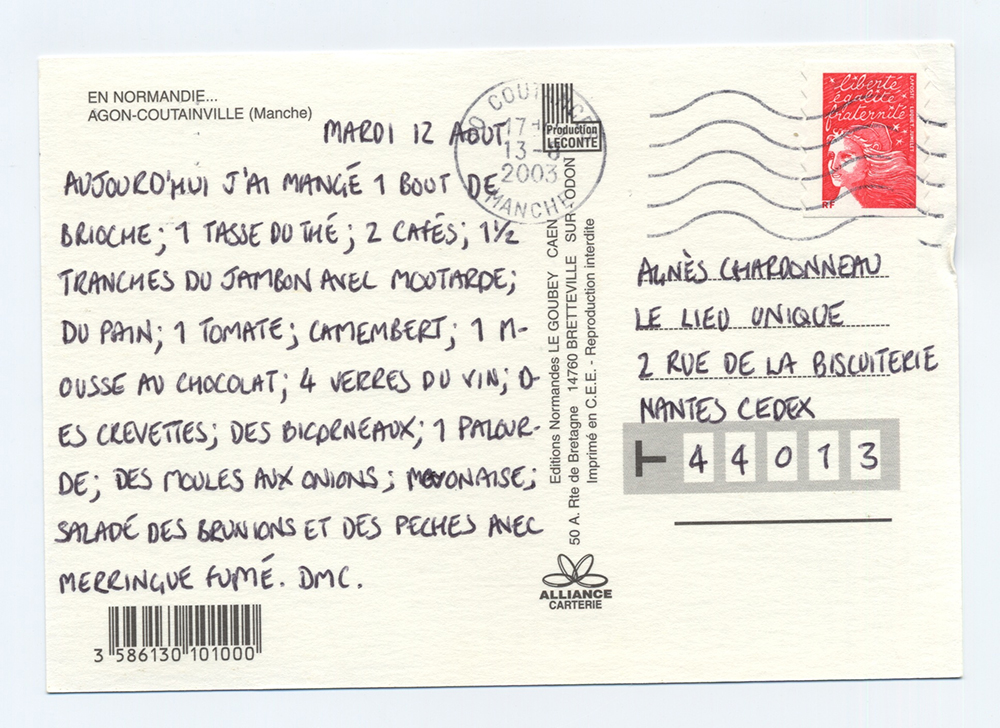 EN NORMANDIE...
AGON-COUTAINVILLE (Manche)
MARDI 12 AOUT
AUJOURD'HUI J'AI MANGÉ 1 BOUT DE
BRIOCHE; 1 TASSE DU THÉ; 2 CAFÉS; 1½
TRANCHES DU JAMBON AVEC MOUTARDE;
DU PAIN; 1 TOMATE; CAMEMBERT; 1 M-
OUSSE AU CHOCOLAT; 4 VERRES DU VIN; D-
ES CREVETTES; DES BIGORNEAUX; 1 PALOUR-
DE; DES MOULES AUX ONIONS; MAYONAISE;
SALADE DES BRUNIONS ET DES PECHES AVEC
MERRINGUE FUMÉ. DMC.
3 586130 101000
Production
LECONTE
17H
13-8
2003
MANCHE
Editions Normandes LE GOUBEY CAEN
50 A. Rte de Bretagne 14760 BRETTEVILLE SUR ODON
Imprimé en C.E.E. - Reproduction interdite
ALLIANCE
CARTERIE
liberté
égalité
fraternité
RF
AGNÈS CHARDONNEAU
LE LIEU UNIQUE
2 RUE DE LA BISCUITERIE
NANTES CEDEX
T 44013